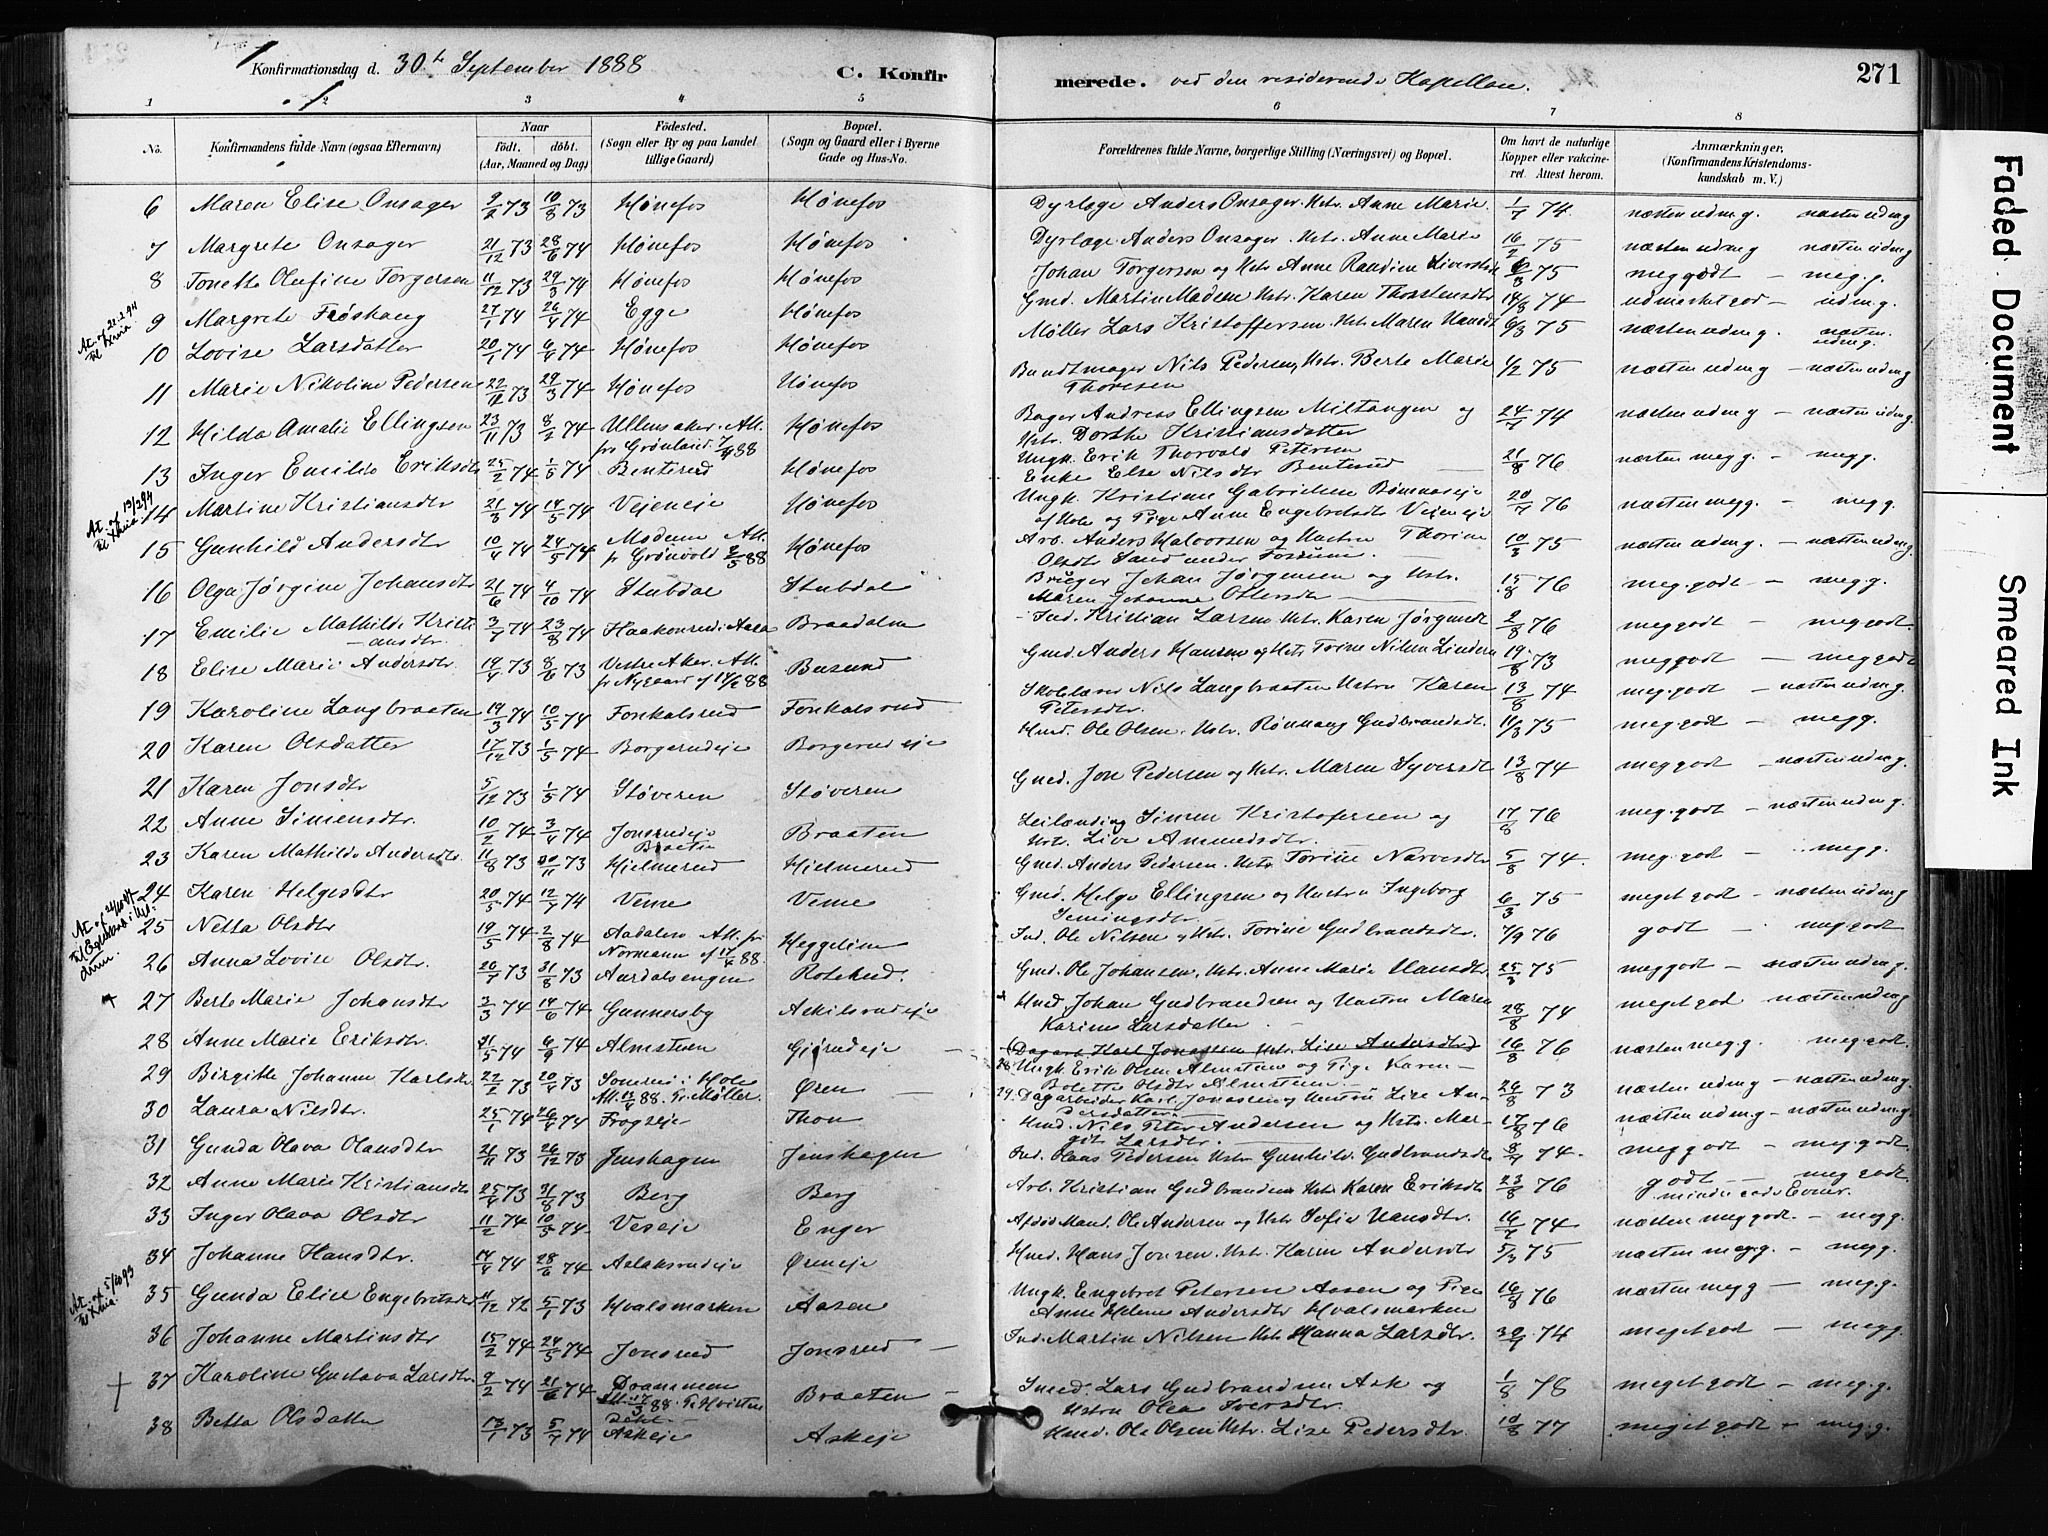 Konfirmationsdag d. 30te September 1888 C. Konfirmerede. ved den residerende Kapellan. 271
1 2 3 4 5 6 7 8
No. Konfirmandens fulde Navn (ogsaa Efternavn) Naar Født. døbt. (Aar, Maaned og Dag) Fødested. (Sogn eller By og paa Landet tillige Gaard) Bopæl. (Sogn og Gaard eller i Byerne Gade og Hus-No. Forældrenes fulde Navne, borgerlige Stilling (Næringsvei) og Bopæl. Om havt de naturlige Kopper eller vakcineret. Attest herom. Anmærkninger, (Konfirmandens Kristendomskundskab m. V.)
6 Maren Elise Onsager 9/2 73 10/8 73 Hønefos Hønefos Dyrlæge Anders Onsager. Hstr. Anne Marie. 1/7 74. næsten udm.g. næsten udmg
7 Margrete Onsager 21/12 73 28/6 74 Hønefos Hønefos Dyrlæge Anders Onsager. Hstr. Anne Marie 16/2 75 næsten udmg næsten udmg
8 Tonette Olefine Torgersen 11/12 73 29/3 74 Hønefos Hønefos Johan Torgersen og Hstr. Anne Randine 75 meg godt – meg.g.
9 Margrete Frøshaug 27/1 74 26/4 74 Egge Hønefos Gmd. Martin Madsen Hstr. Karen Thorstensdtr 14/8 74 udmerket god – udm.g.
10 Lovise Larsdatter 20/1 74 6/4 74 Hønefos Hønefos Møller Lars Kristoffersen. Hstr. Maren Hansdt 6/3 75 næsten udm.g. næsten udm.g.
11 Marie Nikoline Pedersen 22/12 73 29/3 74 Hønefos Hønefos Bundtmager Nils Pedersen, Hstr. Berte Marie Thoresen 1/2 75 næsten udm g – næsten udmg
12 Hilda Amalie Ellingsen 23/11 73 8/2 74 Ullensaker. Att. fra Grønland 7/4 88 Hønefos Bager Andreas Ellingsen Miltangen og Hstr. Dorthe Kristiansdatter 24/7 74 næsten udm g – næsten udmg.
13 Inger Emilie Eriksdtr 25/2 74 1/5 74 Benterud Hønefos Ungk. Erik Thorvald Petersen Enke Else Nilsdtr Benterud 21/8 76 næsten meg g. – megg.
14 Martine Kristiansdtr 21/3 74 14/5 74 Vejeneje Hønefos Ungk. Kristian Gabrielsen af Hole og Pige Anne Engebretsdtr Vejeneje 20/7 76 næsten megg. – megg.
15 Gunhild Andersdtr 10/4 74 24/5 74 Modum Att. fr Grönvold 2/5 88 Hønefos Arb. Anders Halvorsen og Hustru Thorine Olsdtr Sand under Fossum. 10/3 75 næsten udm.g. – næsten udmg.
16 Olga Jørgine Johansdtr 21/6 74 4/10 74 Stubdal Stubdal Bruger Johan Jørgensen og Hstr. Maren Johanne Ottersdtr 15/8 76 meg.godt – megg.
17 Emilie Mathilde Kristiansdtr. 3/7 74 23/8 74 Haakonrud i Aasa Braadalen Ind. Kristian Larsen Hstr. Karen Jørgensdt 2/8 76 meggodt – meggodt.
18 Elise Marie Andersdtr. 14/4 73 8/6 73 Vestre Aker. Att. fr Nygaard af 14/2 88 Busund Gmd. Anders Hansen og Hstr. Torine Nilsen 19/8 73 meggodt – meggodt
19 Karoline Langbraaten 19/3 74 10/5 74 Fonkalsrud Fonkalsrud Skolelærer Nils Langbraaten Hstru Karen Petersdtr. 13/8 74 meg.godt – næsten udm.g.
20 Karen Olsdatter 17/12 73 1/5 74 Borgerudeje Borgerudeje Hmd. Ole Olsen. Hstr. Rønnaug Gudbrandsdt. 11/3 75 meggodt – megg.
21 Karen Jonsdtr 5/12 73 1/5 74 Støveren Støveren Gmd. Jon Pedersen og Hstr. Maren Syversdt 13/8 74 meggodt – næsten udmg.
22 Anne Simensdtr. 10/2 74 3/4 74 Jonsrudeje Braaten Braaten Leilænding Simen Kristofersen og Hstr. Live Amundsdtr. 17/8 76 meg.godt – næsten udm g.
23 Karen Mathilde Andersdtr. 11/8 73 30/11 73 Hjelmerud Hjelmerud Gmd. Anders Pedersen. Hstr. Torine Narvesdtr 5/8 74. meg.godt – megg.
24 Karen Helgesdtr 20/5 74 12/7 74 Veme Veme Gmd. Helge Ellingsen og Hustru Ingeborg 6/3 75 meget godt – næsten udmg
25 Netta Olsdtr 19/5 74 2/8 74 Aadalen Att. fr Normann af 17/4 88. Heggelien Ind. Ole Nilsen og Hstr. Torine Gudbrandsdtr. 7/9 76 godt – meggodt
26 Anna Lovise Olsdtr. 20/7 73 31/8 73 Aurdalsengen Rolerud. Gmd. Ole Johansen, Hstr. Anne Marie Hansdtr. 25/3 75 meggodt – næsten udmg.
27 Berte Marie Johansdtr 3/3 74 14/6 74 Gunnersby Askilsrudeje Hmd. Johan Gudbrandsen og Hustru Maren Karine Larsdatter. 28/8 74 meget god næsten udmg
28 Anne Marie Eriksdtr. 31/5 74 6/9 74 Almsteen Gjørudeje (Dagarb. Karl Jonassen Hstr. Lise Andersdtr) 28. Ungk Erik Olsen Almsteen og Pige Karen Bolette Olsdtr Almsteen 16/8 76 næsten meg.g. – meg.godt.
29 Birgitte Johanne Karlsdtr 22/2 73 20/4 73 Somerud i Hole Att. 17/4 88. fr. Møller. Øren – 29. Dagarbeider Karl Jonassen og Hustru Lise Andersdatter 26/8 73 næsten udmg – næsten udmg
30 Laura Nilsdtr. 25/1 74 26/4 74 Frogseje Thon Hmd. Nils Peter Andersen og Hstr. Margit Larsdtr. 17/8 76 næsten udm.g. næsten udm.g.
31 Gunda Olava Olausdtr 21/11 73 26/12 73 Jenshagen Jenshagen Ind. Olaus Pedersen Hstr Gunhild Gudbrandsdt. 8/7 74. meggodt – meg.godt
32 Anne Marie Kristiansdtr 25/4 73 31/8 73 Berg Berg Arb. Kristian Gudbrandsen Hstr. Karen Eriksdtr 23/8 76 godt – meg godt. mindre gode Evner.
33 Inger Olava Olsdtr 11/2 74 10/5 74. Veseje Enger Afdøde Mand. Ole Andersen og Hstr Sofie Hansdtr. 16/7 74 næsten meggodt. – megg.
34 Johanne Hansdtr. 14/4 74 28/6 74 Aslaksrudeje Øreneje Hmd. Hans Jonsen. Hstr. Karen Andersdtr 5/3 75 næsten meg.g. – megg.
35 Gunda Elise Engebretsdtr 11/12 72 5/1 73 Hvalsmarken Aasen Ungk. Engebret Petersen Aasen og Pige Anne Helene Andersdtr Hvalsmarken 16/8 76 næsten megg – meg.g.
36 Johanne Martinsdtr 15/2 74 24/5 74 Jonsrud Jonsrud – Ind. Martin Nilsen Hstr. Hanna Larsdtr. 74 meget god – megg.
37 Karoline Gustava Larsdtr. 9/2 74 21/6 74 Drammen Braaten – Smed. Lars Gudbrandsen Ask og Hstru Olea Iversdtr. 1/8 78 meget godt – meg.g.
38 Betta Olsdatter 13/1 73 5/7 74 Askeje Askeje Hmd. Ole Olsen Hstr. Lise Pedersdtr. 10/8 77 meget godt – meg.g.
At. af 22.2.94 til Xania
At. af 13/2 94 til Xania
At. af 5/10 93 til Xania.
Faded Document
Smeared Ink